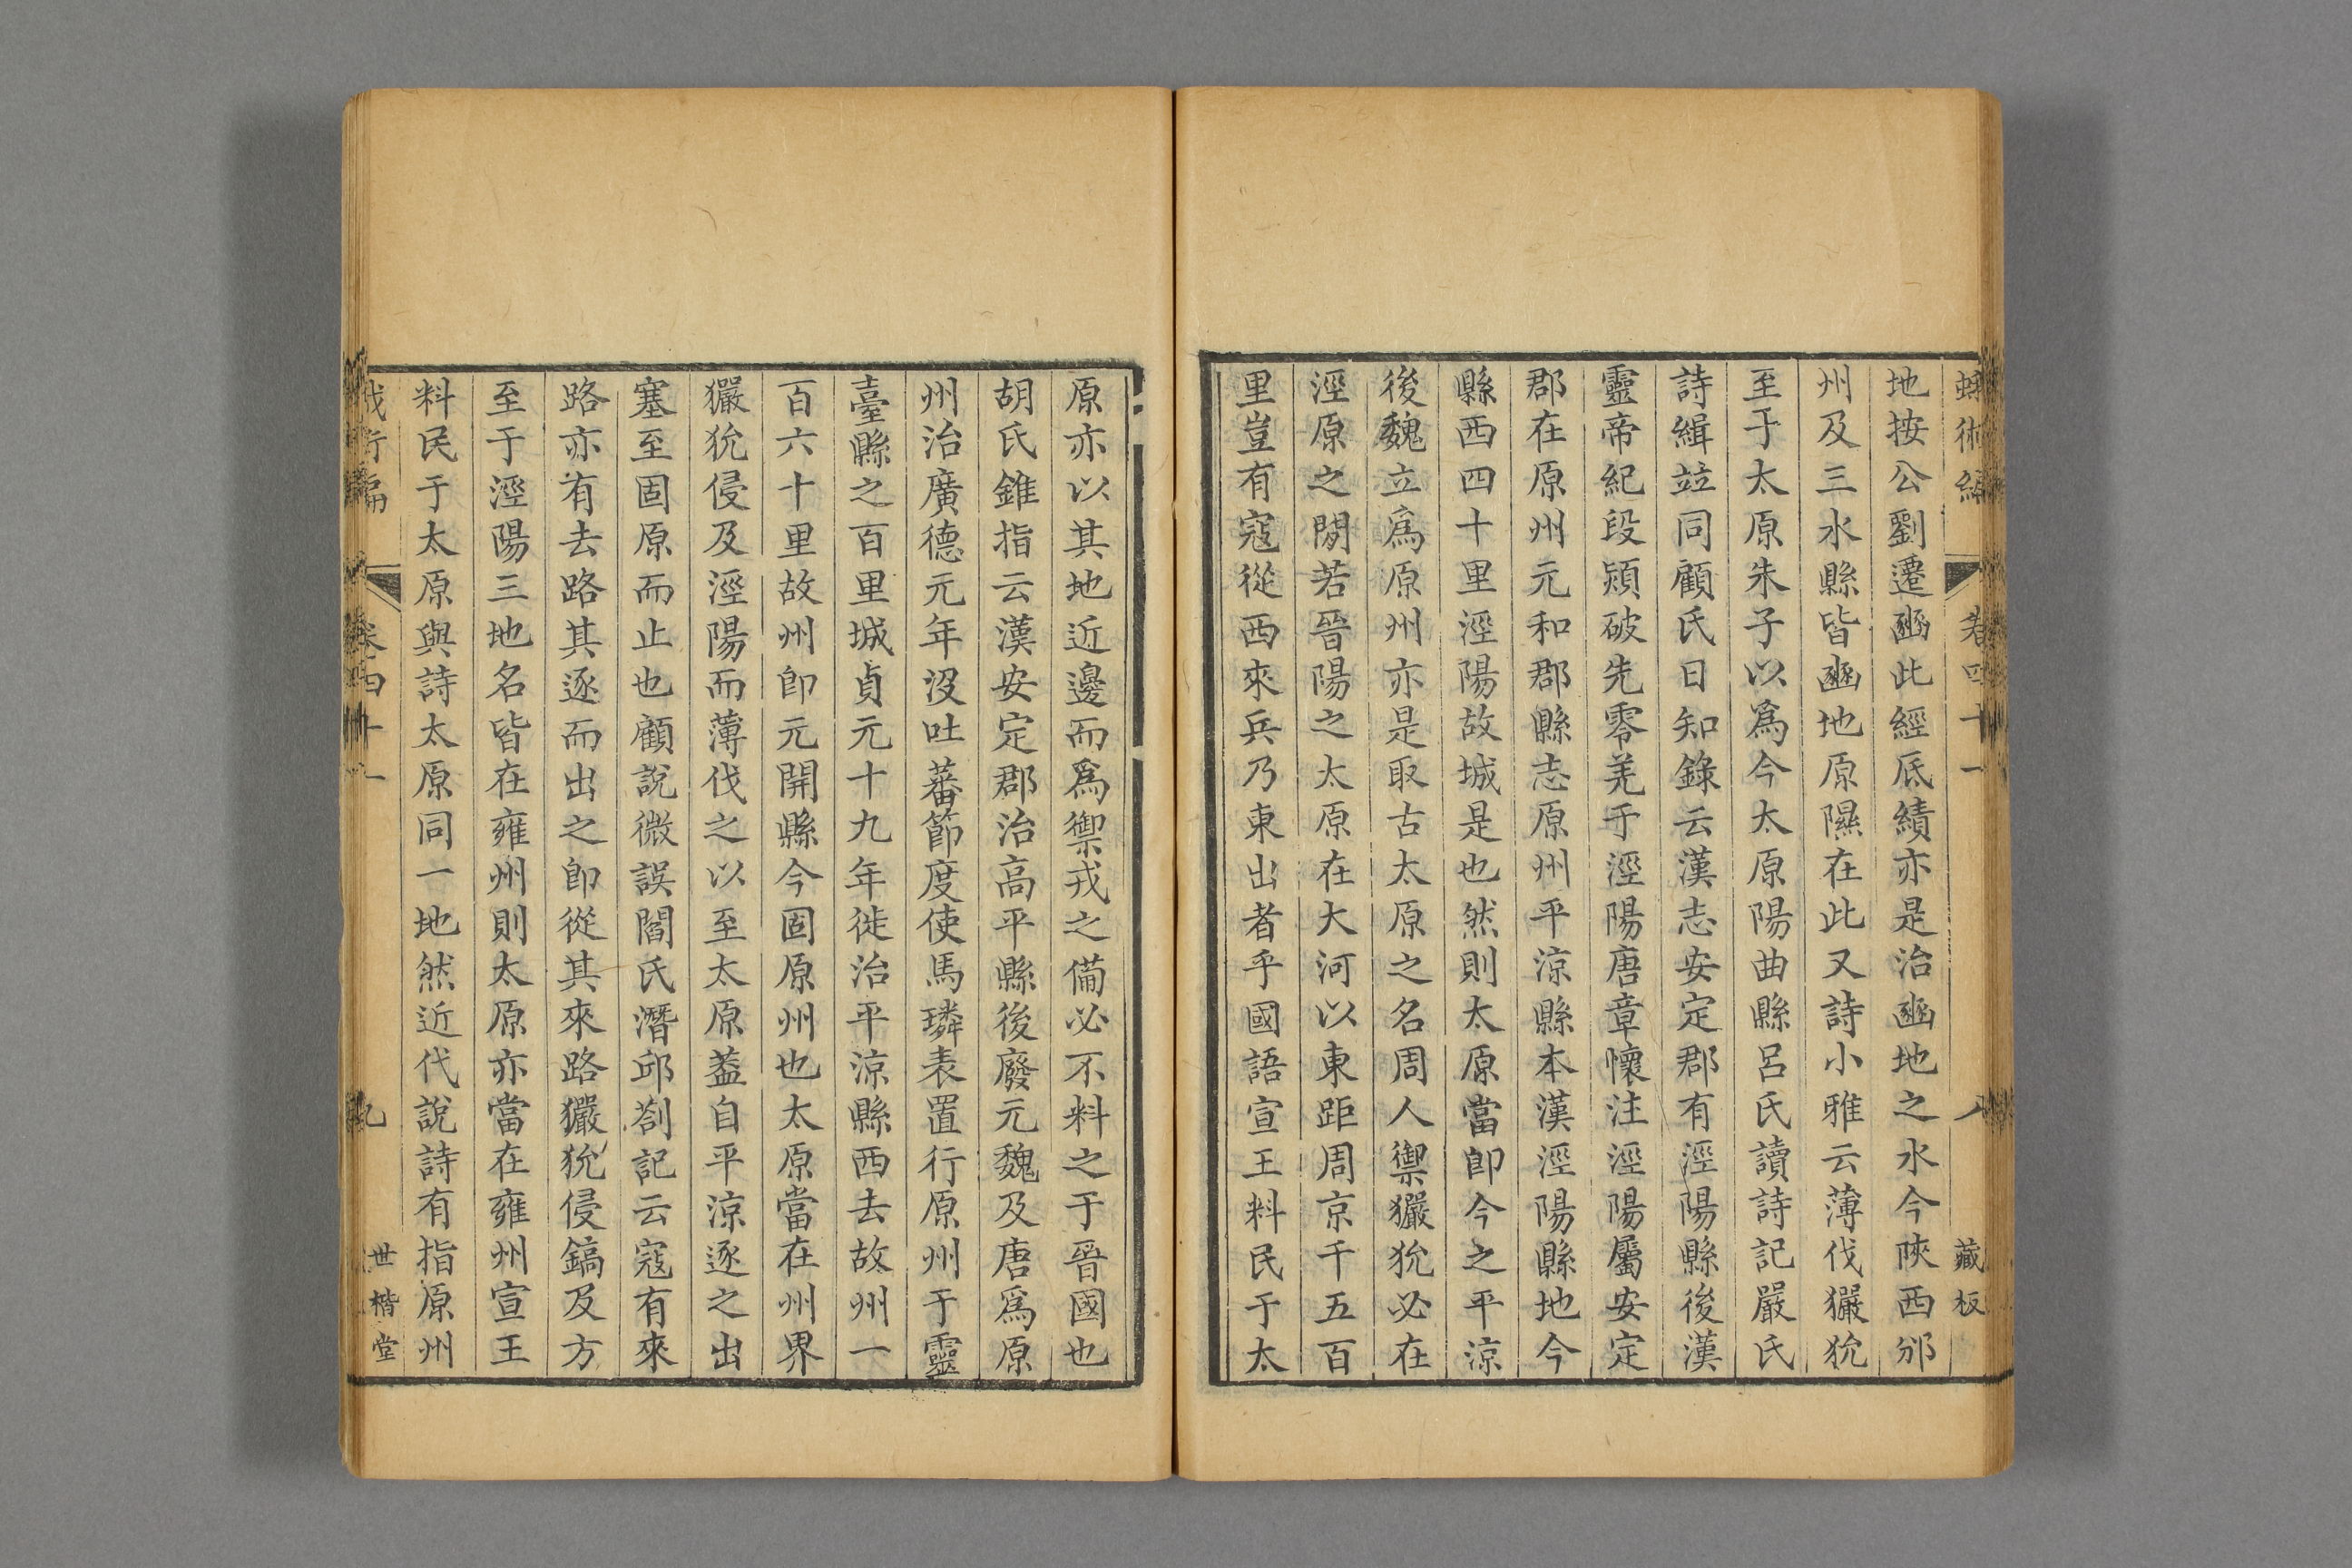 地按公劉遷豳此經厎績亦是治豳地之水今陝西邠
州及三水縣皆豳地原隰在此又詩小雅云薄伐玁狁
至于太原朱子以為今太原陽曲縣呂氏讀詩記嚴氏
詩緝竝同顧氏日知錄云漢志安定郡有涇陽縣後漢
靈帝紀段熲破先零羌于涇陽唐章懷注涇陽屬安定
郡在原州元和郡縣志原州平涼縣本漢涇陽縣地今
縣西四十里涇陽故城是也然則太原當即今之平涼
後魏立為原州亦是取古太原之名周人禦玁狁必在
涇原之閒若晉陽之太原在大河以東距周京千五百
里豈有寇從西來兵乃東出者乎國語宣王料民于太
原亦以其地近邊而為禦戎之備必不料之于晉國也
胡氏錐指云漢安定郡治高平縣後廢元魏及唐為原
州治廣德元年沒吐蕃節度使馬璘表置行原州于靈
臺縣之百里城貞元十九年徙治平涼縣西去故州一
百六十里故州即元開縣今固原州也太原當在州界
玁狁侵及涇陽而薄伐之以至太原蓋自平涼逐之出
塞至固原而止也顧說微誤閻氏潛邱劄記云寇有來
路亦有去路其逐而出之即從其來路玁狁侵鎬及方
至于涇陽三地名皆在雍州則太原亦當在雍州宣王
料民于太原與詩太原同一地然近代說詩有指原州
世楷堂
藏板